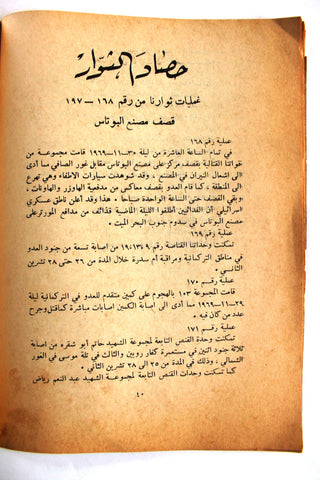 حصاد الثوار
عمليات ثوارنا من رقم ١٦٨ — ١٩٧
قصف مصنع البوتاس
عملية رقم ١٦٨
في تمام الساعة العاشرة من ليلة ٣٠-١١-١٩٦٩ قامت مجموعة من
قواتنا القتالية بقصف مركز على مصنع البوتاس مقابل غور الصافي مما أدى
الى اشعال النيران في المصنع ، وقد شوهدت سيارات الاطفاء وهي تهرع
الى المنطقة ، كما قام العدو بقصف معاكس من مدفعية الهاوزر والهاونات ،
وبقي القصف حتى الساعة الواحدة صباحا . هذا وقد أعلن ناطق عسكري
اسرائيلي أن الفدائيين أطلقوا الليلة الماضية قذائف من مدافع المورتر على
مصنع البوتاس في سدوم جنوب البحر الميت .
عملية رقم ١٦٩
تمكنت وحداتنا القناصة رقم ٩ من اصابة تسعة من جنود العدو
في مناطق التركمانية ومراقبة أم سدرة خلال المدة من ٢٦ حتى ٢٨ تشرين
الثاني .
عملية رقم ١٧٠
قامت المجموعة ١٠٣ بالهجوم على كمين متقدم للعدو في التركمانية ليلة
٢٩-١١-١٩٦٩ مما أدى الى اصابة الكمين اصابات مباشرة كما قتل وجرح
عدد من كان فيه .
عملية رقم ١٧١
تمكنت وحدة القنص التابعة لمجموعة الشهيد حاتم أبو شقره من اصابة
ثلاثة جنود اثنين في مستعمرة كفار روبين والثالث في تلة موسى في الغور
الشمالي ، وذلك في المدة من ٢٥ الى ٢٨ تشرين الثاني .
كما تمكنت وحدات القنص التابعة لمجموعة الشهيد عبد النعم رياض
٤٠